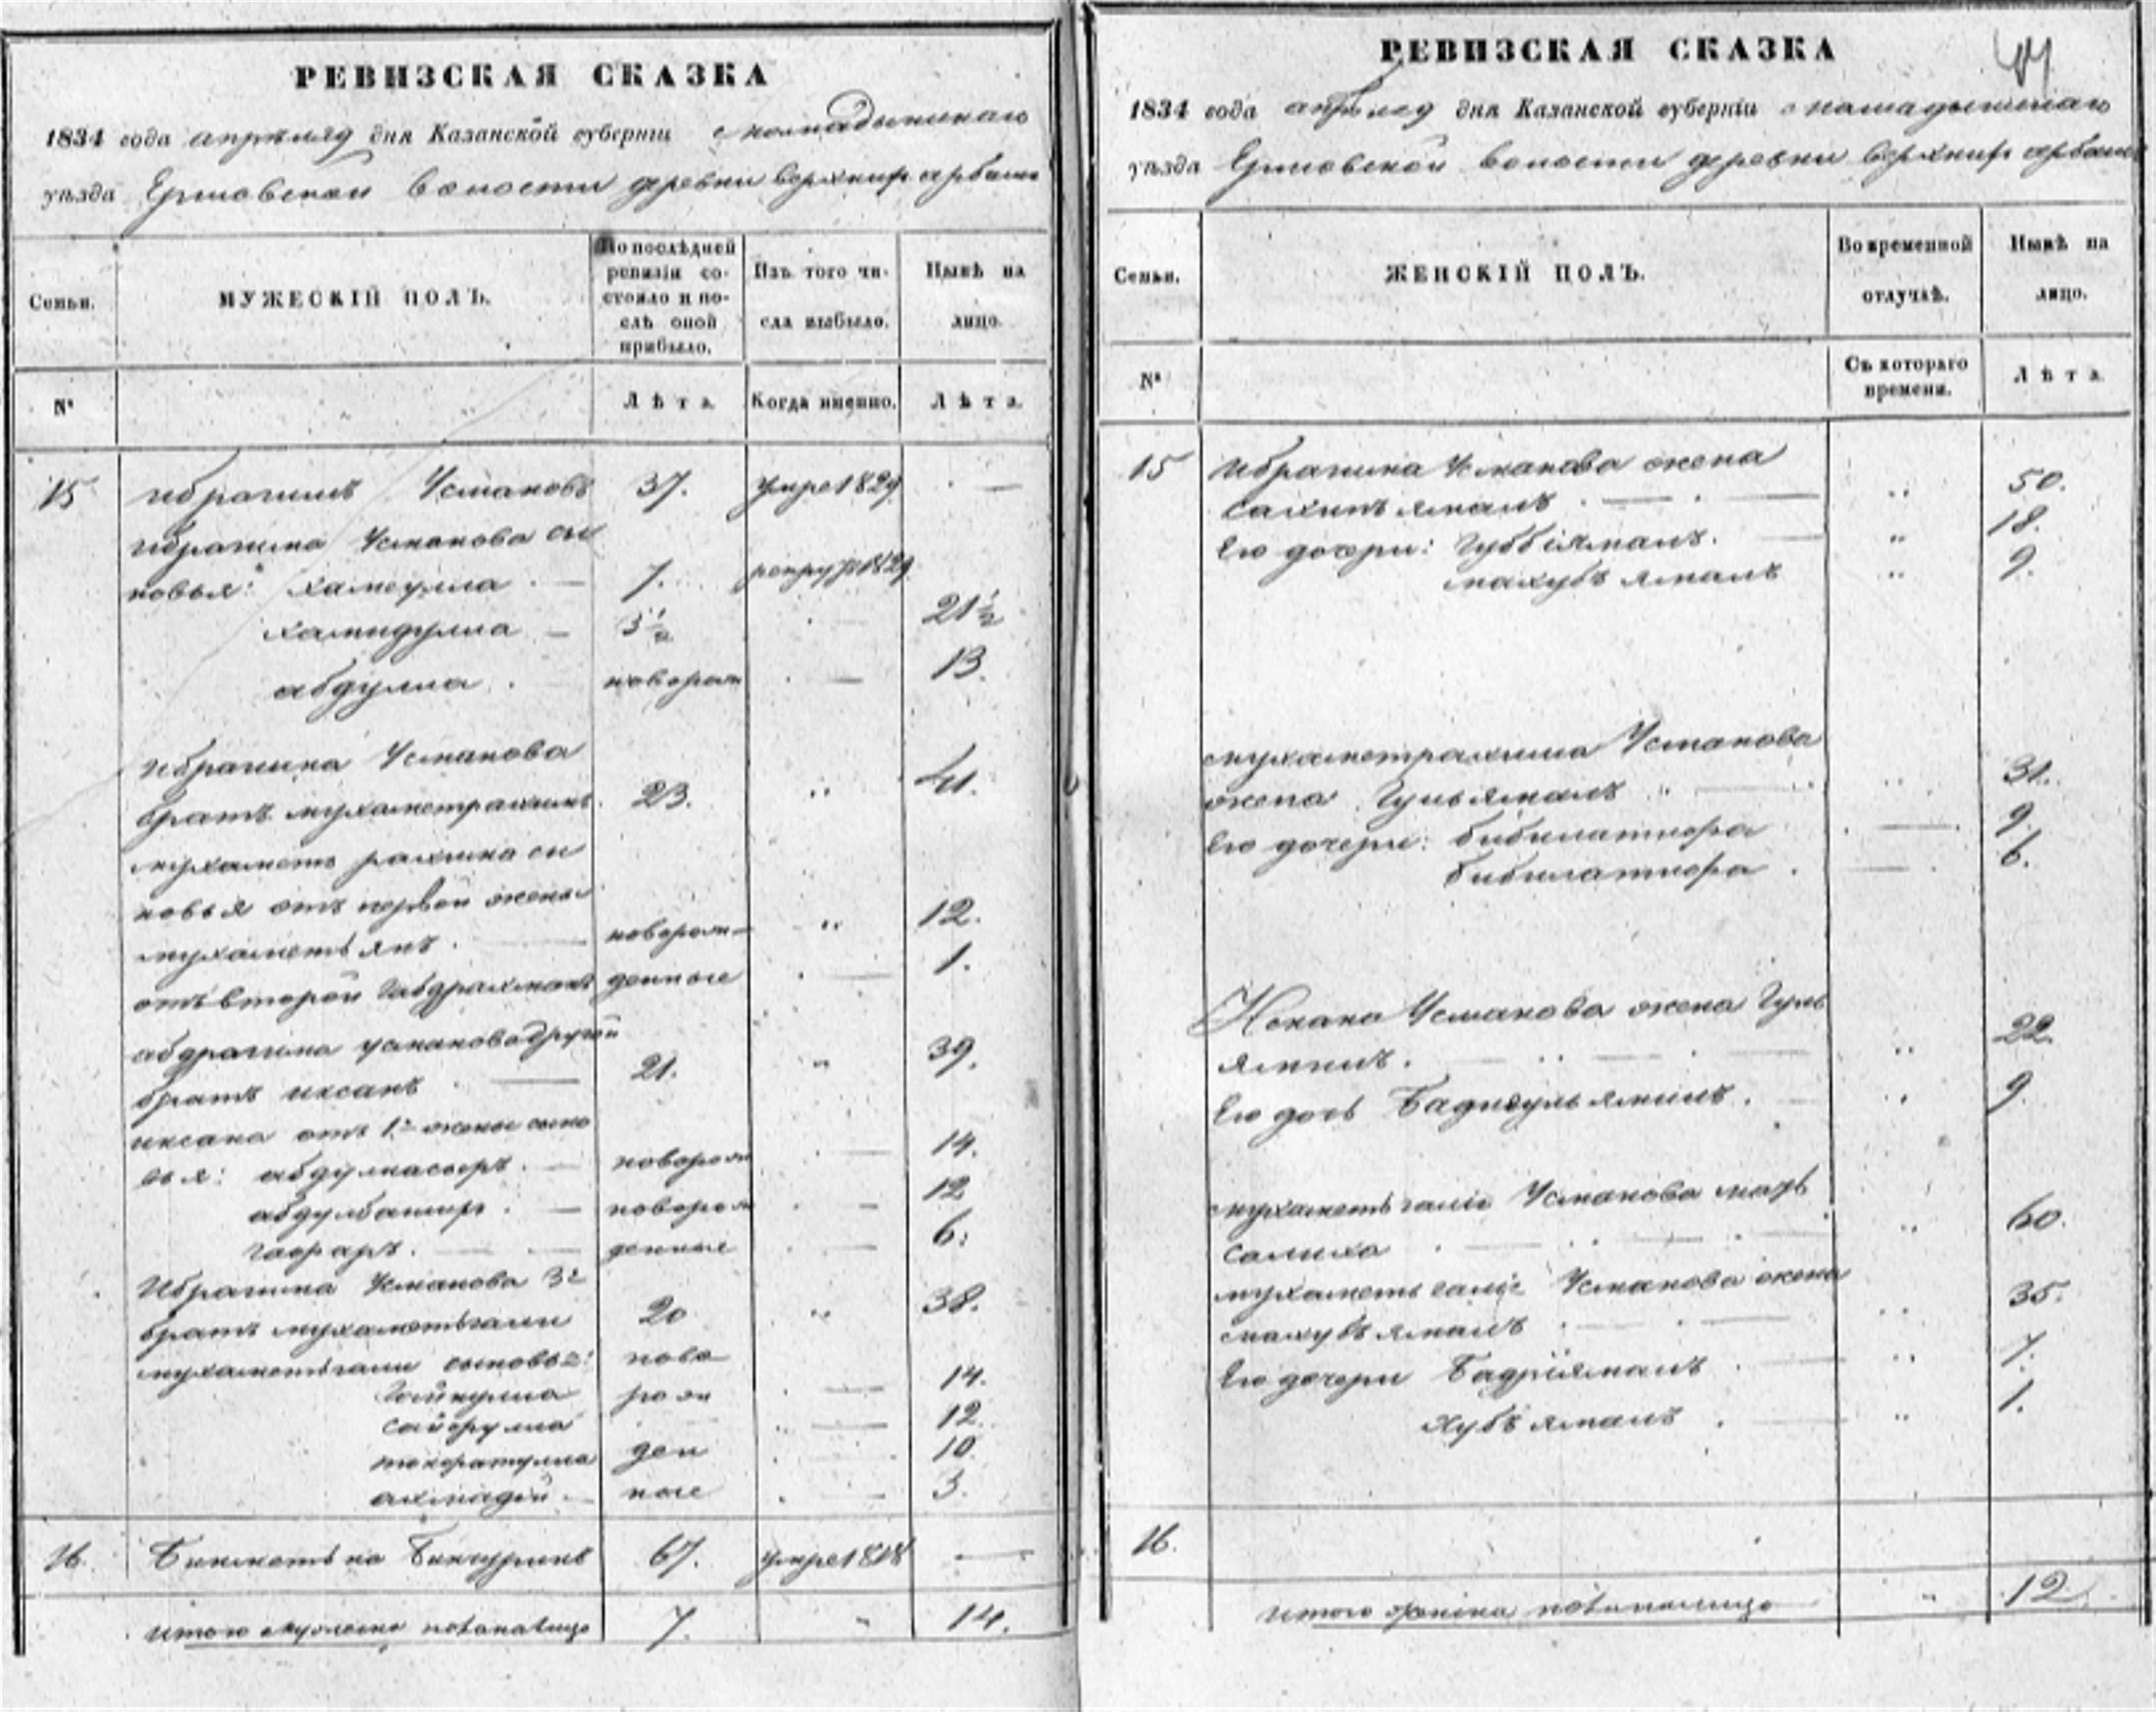 РЕВИЗСКАЯ СКАЗКА
1834 года апрѣля 9 дня Казанской губерніи
уѣзда волости деревни верхнир арбаш
Семьи.
МУЖЕСКІЙ ПОЛЪ.
По послѣдней ревизіи состояло и послѣ оной прибыло.
Изъ того числа выбыло.
Нынѣ на лицо.
№
Лѣта.
Когда именно.
Лѣта.
15 ибрагимъ Усмановъ 37. умре 1829 —
ибрагима Усманова сы
новья: хамеулла 7. рекру 1829
хамидулла — 3½ — 21½
абдулла новорож — 13.
ибрагима Усманова
братъ мухаметрахимъ 23. " 41.
мухаметъ рахима сы
новья отъ первой жены
мухаметьянъ. новорож— " 12.
отъ второй габдрахманъ денные — 1.
абдрагима усманова другой
братъ иксанъ 21. " 39.
иксана отъ 1й жены сыно
вья: абдулнасыръ. — новорож — 14.
абдулбашир. — новорож — 12
гафаръ. — денные — 6.
Ибрагима Усманова 3й
братъ мухаметьгали 20 " 38.
мухаметьгали сыновья: ново
рож — 14.
— 12.
ден 10.
ахмадѣй — ные — 3.
16. 67. умре 1818 —
итого мужеска пола налицо 7. " 14.
РЕВИЗСКАЯ СКАЗКА
1834 года апрѣля 9 дня Казанской губерніи
уѣзда волости деревни верхнир арбаш
Семьи.
ЖЕНСКІЙ ПОЛЪ.
Во временной отлучкѣ.
Нынѣ на лицо.
№
Съ котораго времени.
Лѣта.
15 ибрагима Усманова жена
сахипъ ямалъ — " 50.
Его дочери: Губбіямалъ. — " 18.
махубъ ямалъ " 9.
мухаметрахима Усманова
жена Гульямалъ " 31.
Его дочери: бибилатифа — 9.
бибилатифа. — 6.
Иксана Усманова жена Гуль
ямилъ. — " 22.
Его дочь Бадигульямилъ. " 9.
мухаметьгали Усманова мать
салиха — " 60.
мухаметьгали Усманова жена
махубъямалъ — " 35.
Его дочери Бадріямалъ " 7.
хубъямалъ. — " 1.
16.
итого женска пола налицо " 12